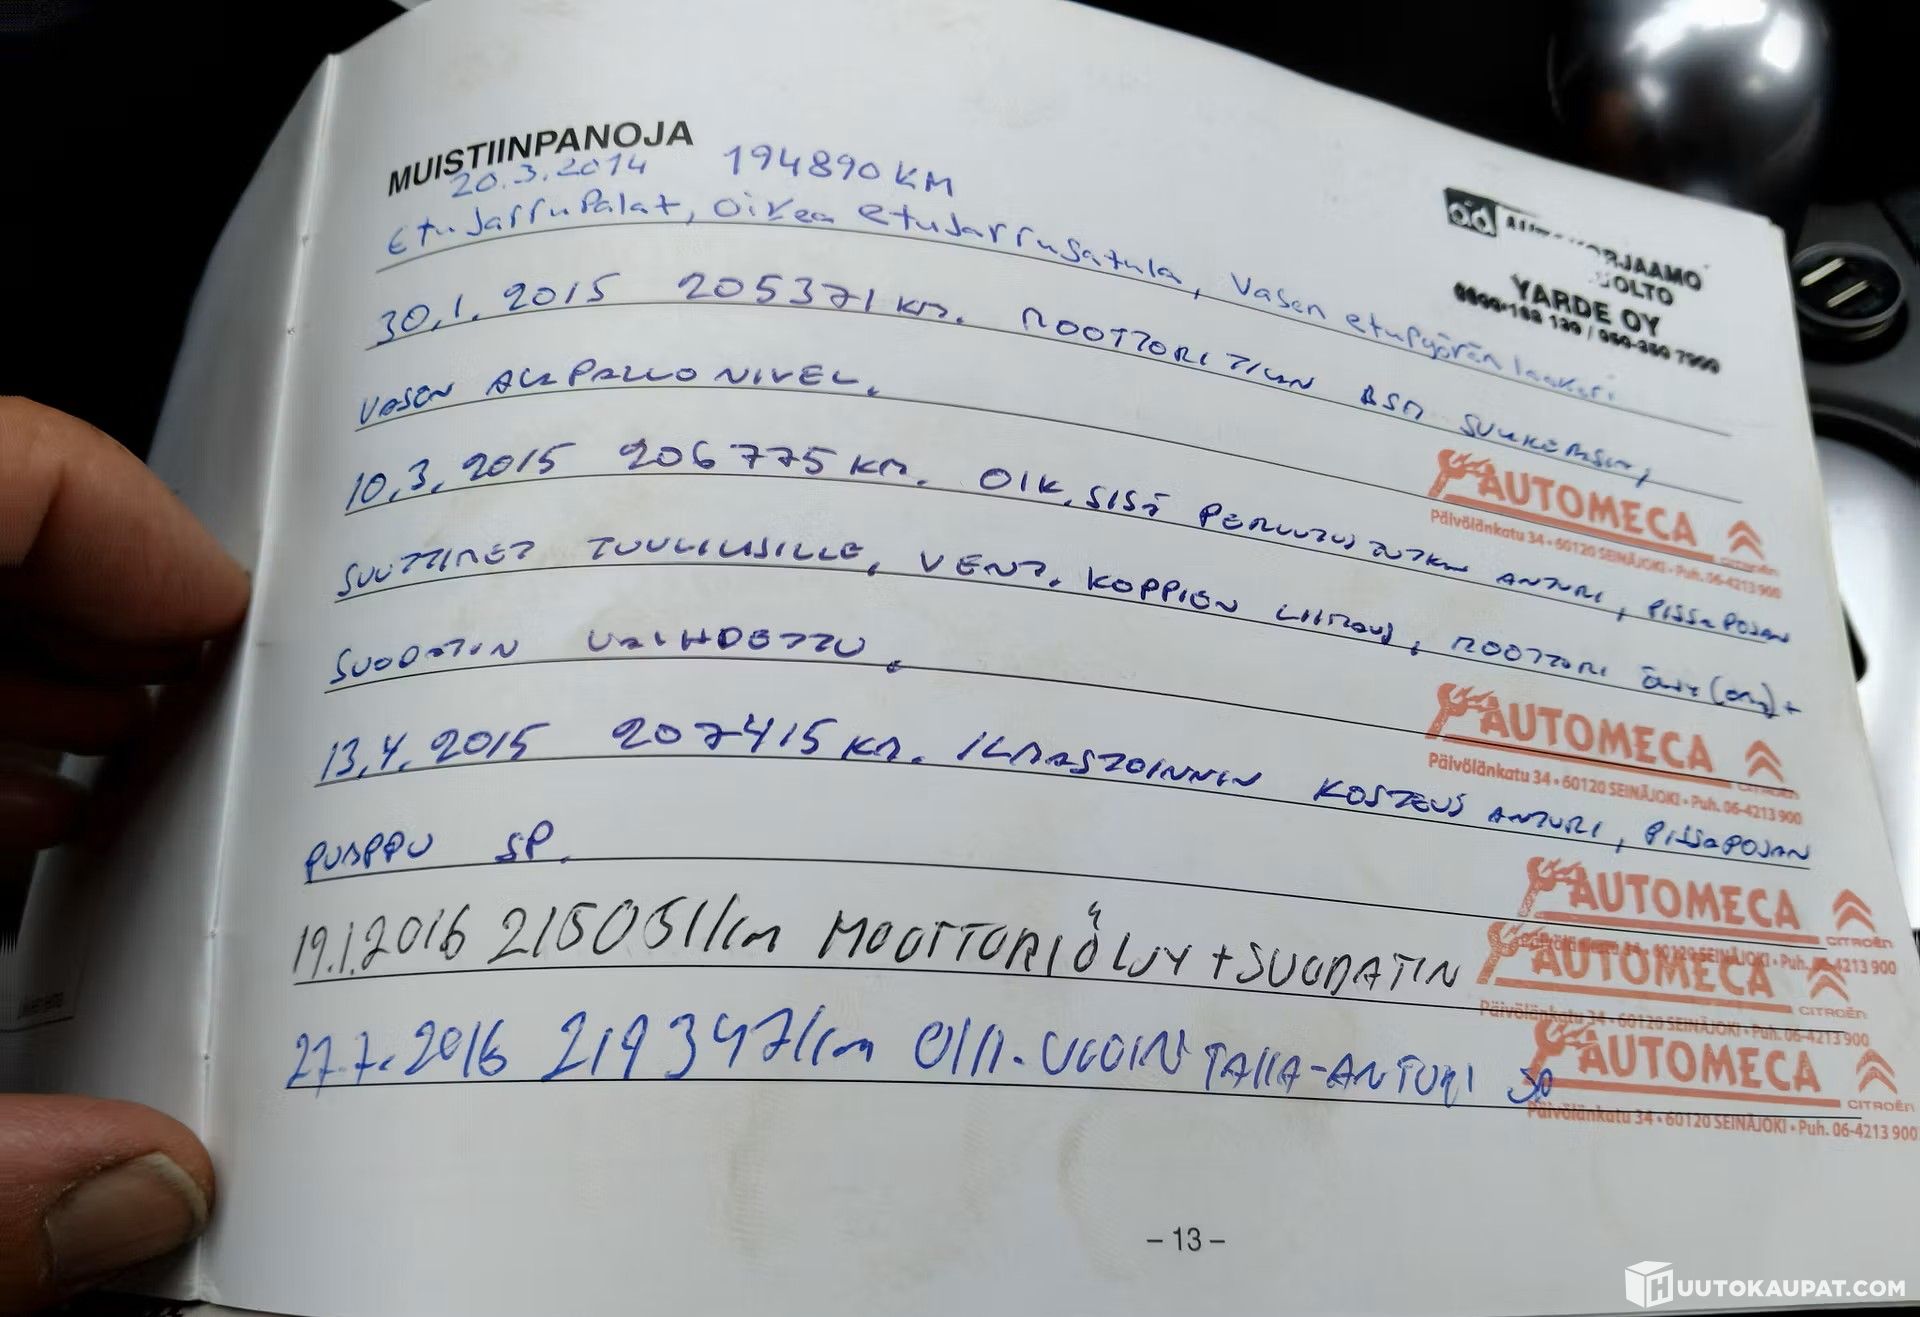 MUISTIINPANOJA
20.3.2014 194890 KM
etujarrupalat, oikea etujarrusatula, Vasen etupyörän laakeri
YARDE OY
30.1.2015 205371 KM. MOOTTORITILAN BSM SULAKERASIA,
VASEN ALAPALLONIVEL.
10.3.2015 206775 KM. OIK. SISÄ PERUUTUSTUTKAN ANTURI, PISSAPOJAN
SUUTTIMET TUULILASILLE, VENT. KOPPIEN LIITOS, MOOTTORI ÖLJY +
SUODATIN VAIHDETTU.
13.4.2015 207415 KM. ILMASTOINNIN KOSTEUS ANTURI, PISSAPOJAN
PUMPPU SP.
19.1.2016 215051 km MOOTTORIÖLJY + SUODATIN
27.7.2016 219347 km TAKA-ANTURI
AUTOMECA
CITROËN
Päivölänkatu 34 • 60120 SEINÄJOKI • Puh. 06-4213 900
AUTOMECA
CITROËN
Päivölänkatu 34 • 60120 SEINÄJOKI • Puh. 06-4213 900
AUTOMECA
CITROËN
60120 SEINÄJOKI • Puh. 06-4213 900
AUTOMECA
CITROËN
Päivölänkatu 34 • 60120 SEINÄJOKI • Puh. 06-4213 900
AUTOMECA
CITROËN
Päivölänkatu 34 • 60120 SEINÄJOKI • Puh. 06-4213 900
– 13 –
HUUTOKAUPAT.COM